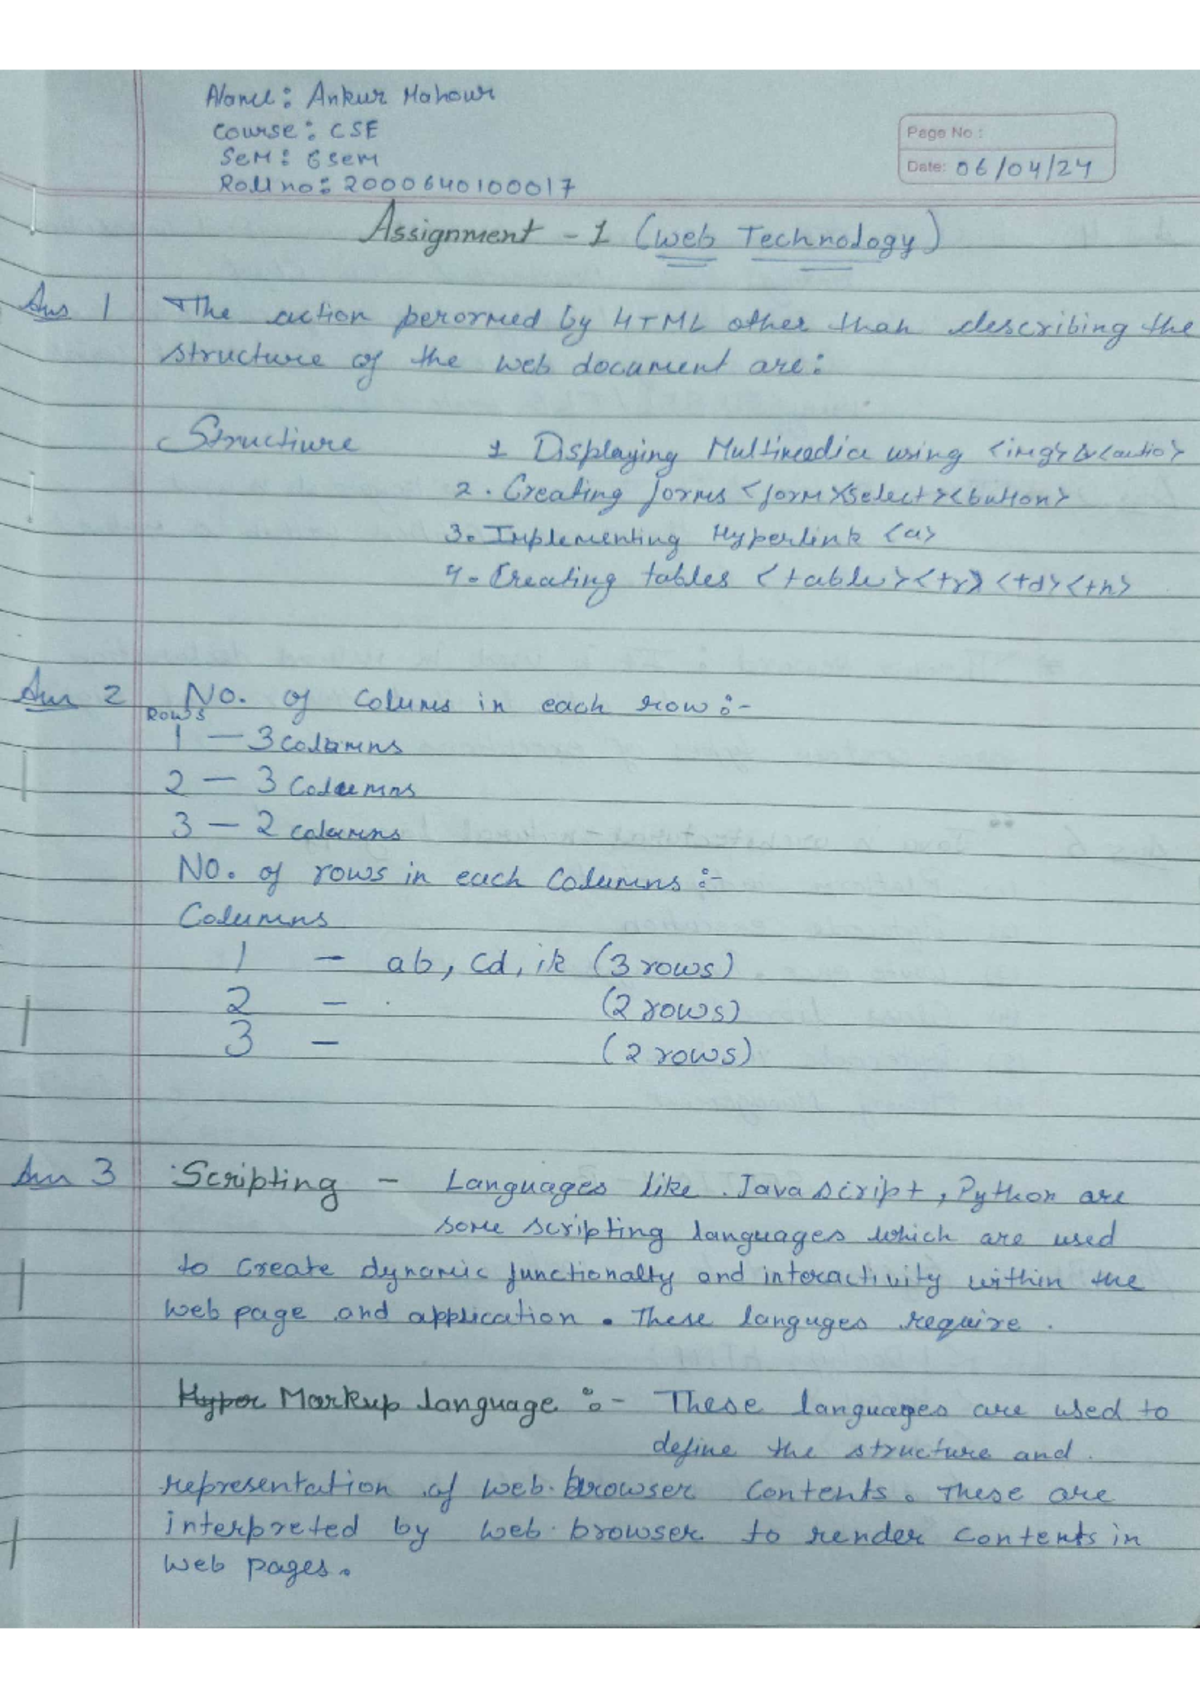 Name: Ankur Mahour
Course: CSE
Page No.:
Sem: 6 sem
Date: 06/04/24
Roll no: 2000640100017
Assignment - 1 (Web Technology)
Ans 1 The action perormed by HTML other than describing the
structure of the web document are:
Structiure 1 Displaying Multimedia using <img> & <autio>
2. Creating forms <form><select><button>
3. Implementing Hyperlink <a>
4. Creating tables <table><tr><td><th>
Ans 2 No. of colums in each row:-
Rows
1 — 3 columns
2 — 3 Columns
3 — 2 columns
No. of rows in each Columns:-
Columns
1 - ab, cd, ik (3 rows)
2 - (2 rows)
3 - (2 rows)
Ans 3 Scripting - Languages like Java script, Python are
some scripting languages which are used
to create dynamic functionalty and interactivity within the
web page and application. These languges require.
Hyper Markup language :- These languages are used to
define the structure and
representation of web browser contents. These are
interpreted by web browser to render contents in
web pages.